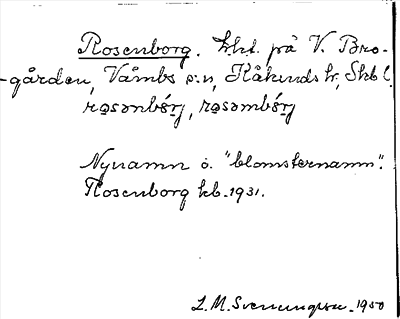 Rosenborg. tht. på V. Bro-
-gården, Våmbs sn, Kåkinds hr, Skb l.
rosənbórj, rosəmbórj
Nynamn o. "blomsternamn".
Rosenborg kb. 1931.
L. M. Svenungsson. 1950